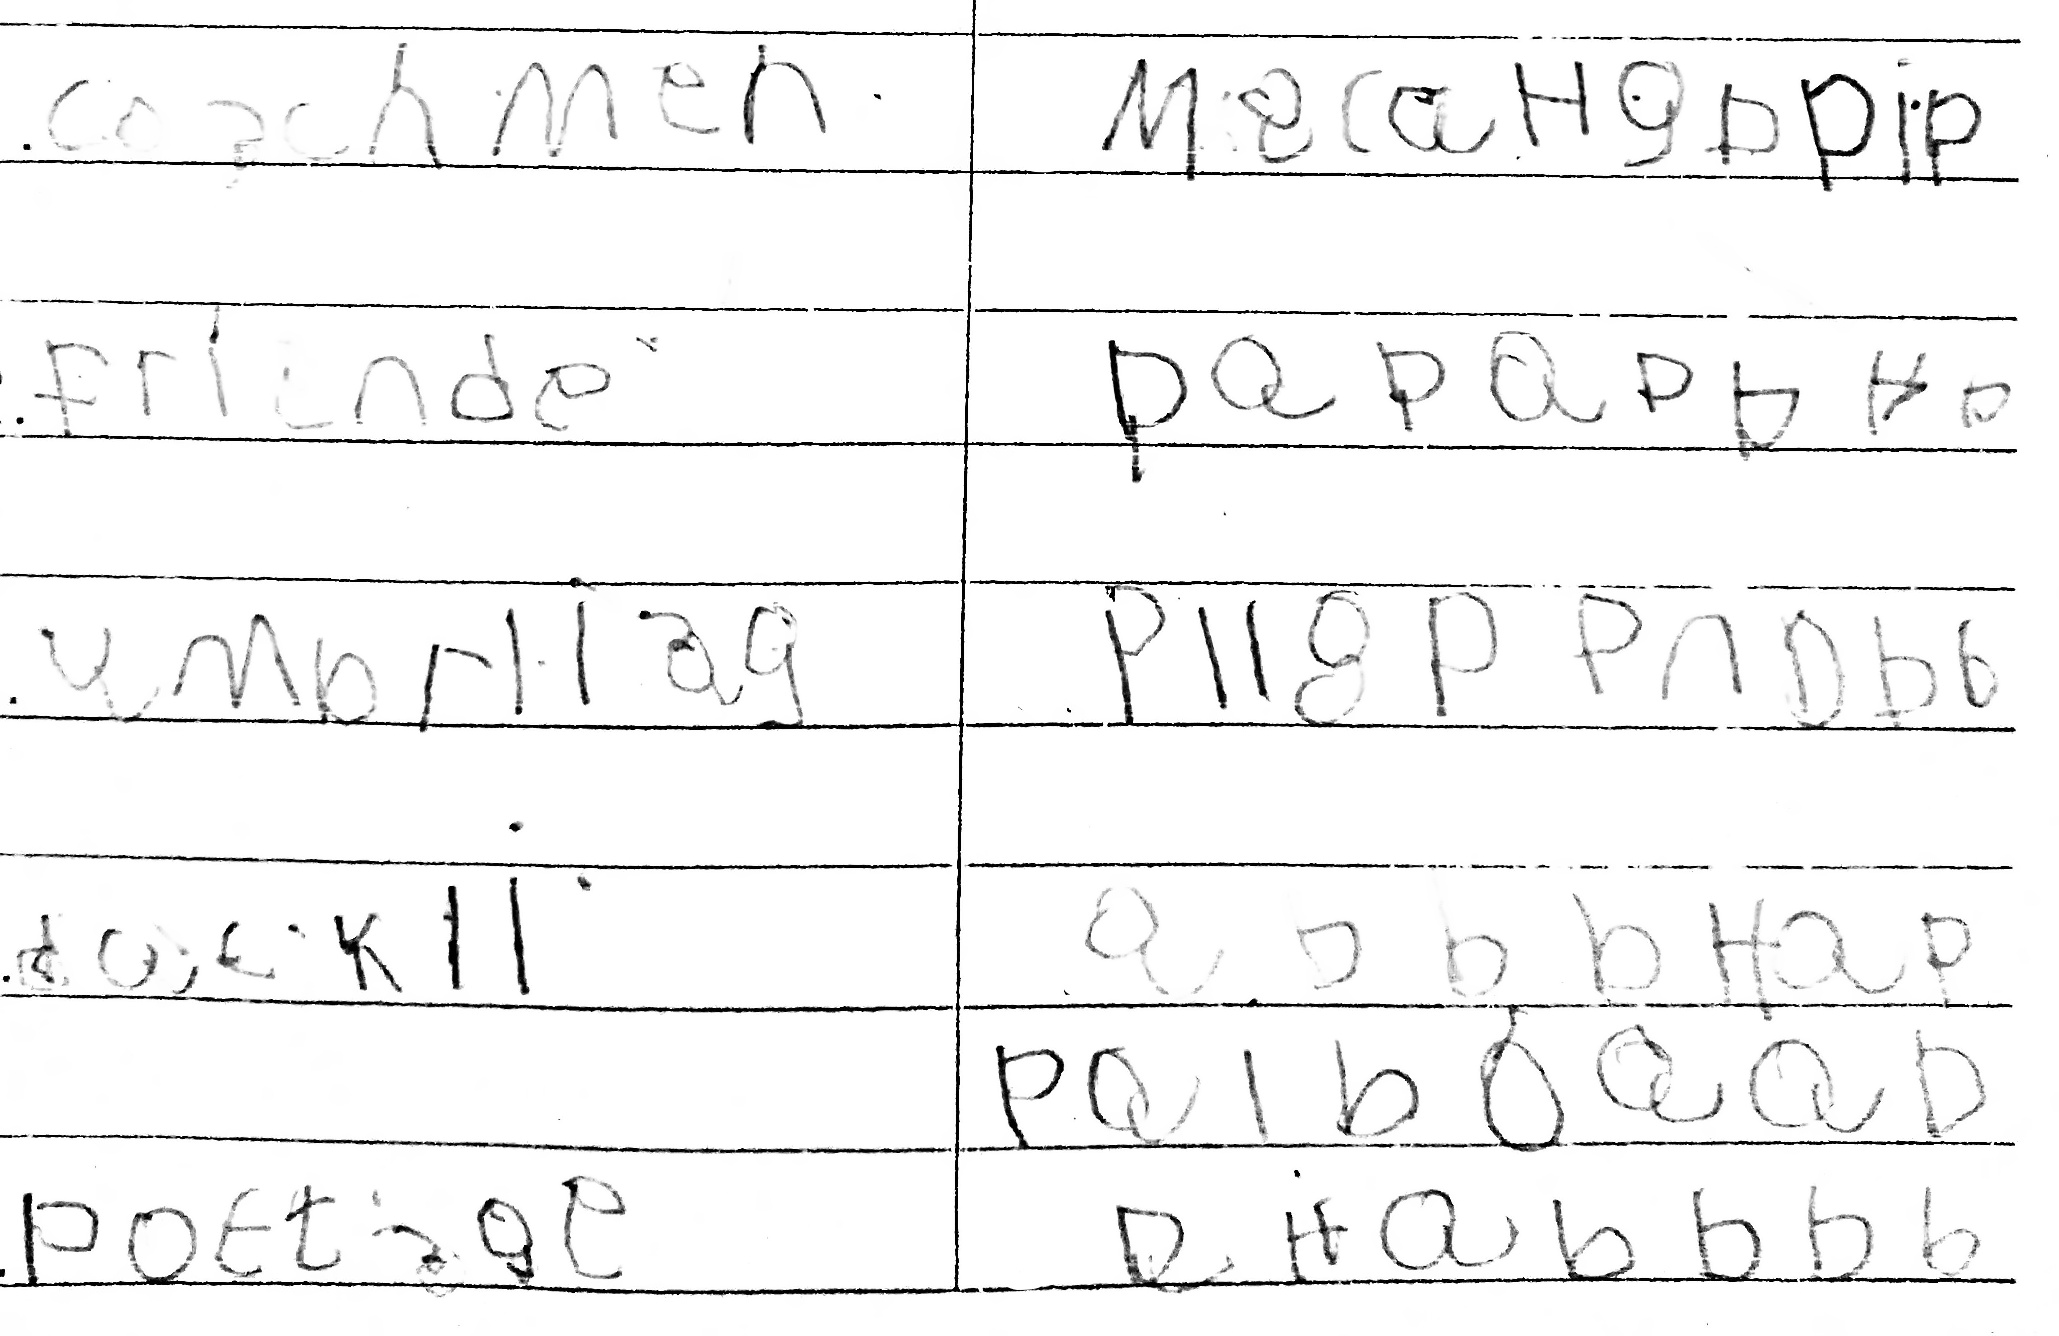 coachmen MercaHgppip
Friende papappHp
umbrllag pllgppnDbb
dockll abbbHap
palboaab
postage DHabbbb